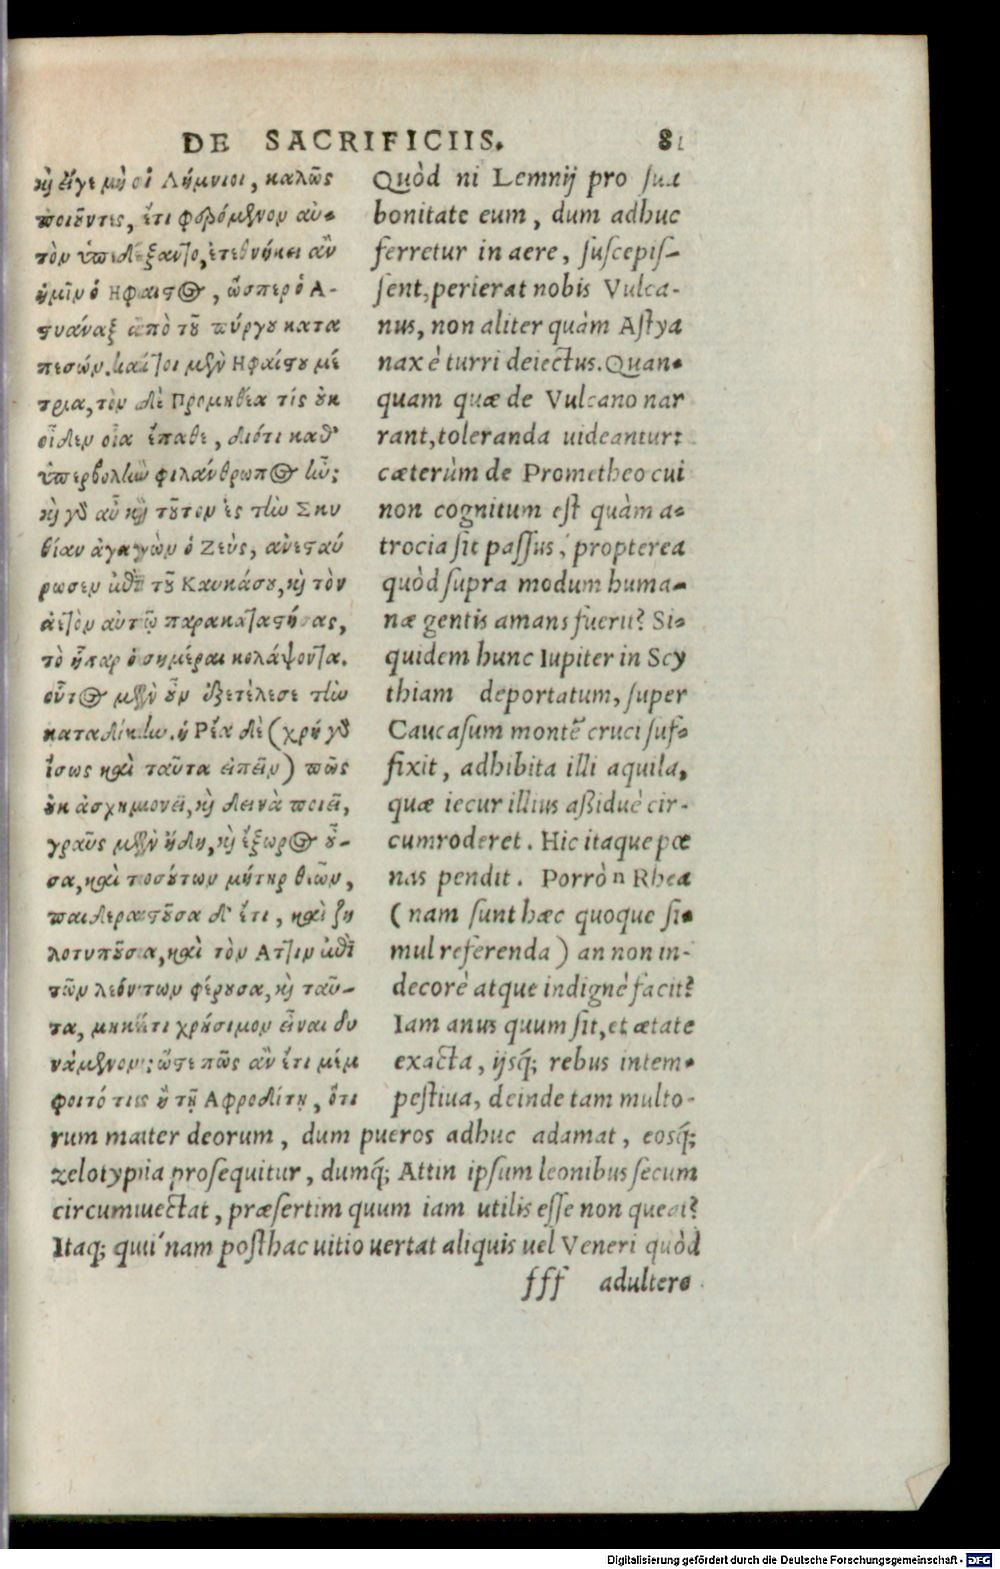 DE SACRIFICIIS. 81
κ̀ εἴγε μὴ οἱ Λήμνιοι, καλῶς
ποιοῦντες, ἔτι φερόμενον αὐ-
τὸν ὑπεδέξαντο, ἐτεθνήκει ἂν
ἡμῖν ὁ Ηφαιστος, ὥσπερ ὁ Α-
στυάναξ ἀπὸ τοῦ πύργου κατα
πεσών. καίτοι μὲν Ηφαίστου μέ
τρια, τὸν δὲ Προμηθέα τίς οὐκ
οἶδεν οἷα ἔπαθε, διότι καθ'
ὑπερβολὴν φιλάνθρωπος ἦν;
καὶ γὰρ αὖ καὶ τοῦτον ἐς τὴν Σκυ
θίαν ἀγαγὼν ὁ Ζεὺς, ἀνεσταύ
ρωσεν ἐπὶ τοῦ Καυκάσου, καὶ τὸν
ἀετὸν αὐτῷ παρακαταστήσας,
τὸ ἧπαρ ὁσημέραι κολάψοντα.
οὗτος μὲν οὖν ἐξετέλεσε τὴν
καταδίκην. ἡ Ρέα δὲ (χρὴ γὰρ
ἴσως καὶ ταῦτα εἰπεῖν) πῶς
οὐκ ἀσχημονεῖ, καὶ δεινὰ ποιεῖ,
γραῦς μὲν ἤδη, καὶ ἔξωρος οὖ-
σα, καὶ τοσούτων μήτηρ θεῶν,
παιδεραστοῦσα δ' ἔτι, καὶ ζη
λοτυποῦσα, καὶ τὸν Αττιν ἐπὶ
τῶν λεόντων φέρουσα, καὶ ταῦ-
τα, μηκέτι χρήσιμον εἶναι δυ
νάμενον; ὥστε πῶς ἂν ἔτι μέμ
φοιτό τις ἢ τῇ Αφροδίτῃ, ὅτι
Quòd ni Lemnij pro sua
bonitate eum, dum adhuc
ferretur in aere, suscepis-
sent, perierat nobis Vulca-
nus, non aliter quàm Astya
nax è turri deiectus. Quan-
quam quæ de Vulcano nar
rant, toleranda uideantur:
cæterùm de Prometheo cui
non cognitum est quàm a-
trocia sit passus, propterea
quòd supra modum huma-
næ gentis amans fuerit? Si-
quidem hunc Iupiter in Scy
thiam deportatum, super
Caucasum montẽ cruci suf-
fixit, adhibita illi aquila,
quæ iecur illius aßiduè cir-
cumroderet. Hic itaque pœ
nas pendit. Porrò n Rhea
(nam sunt hæc quoque si-
mul referenda) an non in-
decorè atque indignè facit?
Iam anus quum sit, et ætate
exacta, ijsq́; rebus intem-
pestiua, deinde tam multo-
rum mater deorum, dum pueros adhuc adamat, eosq́;
zelotypia prosequitur, dumq́; Attin ipsum leonibus secum
circumuectat, præsertim quum iam utilis esse non queat?
Itaq; qui nam posthac uitio uertat aliquis uel Veneri quòd
fff adultero
Digitalisierung gefördert durch die Deutsche Forschungsgemeinschaft - DFG